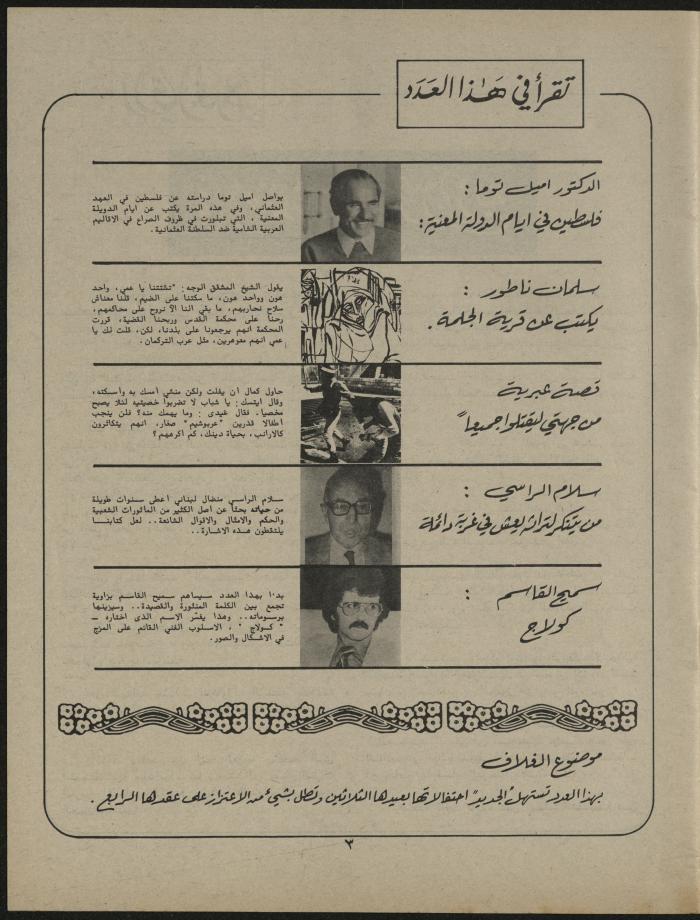 تقرأ في هَذا العَدَد
الدكتور اميل توما :
فلسطين في ايام الدولة المعنية :
يواصل اميل توما دراسته عن فلسطين في العهد
العثماني، وفي هذه المرة يكتب عن ايام الدويلة
المعنية ، التي تبلورت في ظروف الصراع في الاقاليم
العربية الشامية ضد السلطنة العثمانية .
سلمان ناطور :
يكتب عن قرية الجلمة .
يقول الشيخ المشقق الوجه: "تشتتنا يا عمي، واحد
هون وواحد هون، ما سكتنا على الضيم، قلنا معناش
سلاح نحاربهم، ما بقي النا الا نروح على محاكمهم،
رحنا على محكمة القدس وربحنا القضية، قررت
المحكمة انهم يرجعونا على بلدنا، لكن، قلت لك يا
عمي انهم متوهرين، مثل عرب التركمان .
قصة عبرية
من جهتي ليقتلوا جميعاً
حاول كمال ان يفلت ولكن منشي أمسك به وأسكته،
وقال ايتسك: يا شباب لا تضربوا خصيتيه لئلا يصبح
مخصيا. فقال غيدي : وما يهمك منه؟ فلن ينجب
اطفالا قذرين "عربوشيم" صغار، انهم يتكاثرون
كالارانب، بحياة دينك، كم اكرههم؟
سلام الراسي :
من يتنكر لتراثه يعش في غربة دائمة
سلام الراسي مناضل لبناني أعطى سنوات طويلة
من حياته بحثا عن اصل الكثير من المأثورات الشعبية
والحكم والامثال والاقوال الشائعة.. لعل كتابنا
يلتقطون هذه الاشارة..
سميح القاسم :
كولاج
بدءا بهذا العدد سيساهم سميح القاسم بزاوية
تجمع بين الكلمة المنثورة والقصيدة.. وسيزينها
برسوماته.. وهذا يفسّر الاسم الذي اختاره -
" كولاج " ، الاسلوب الفني القائم على المزج
في الاشكال والصور.
موضوع الغلاف
بهذا العدد تستهل "الجديد" احتفالاتها بعيدها الثلاثين وتطل بشيء من الاعتزاز على عقدها الرابع .
٣